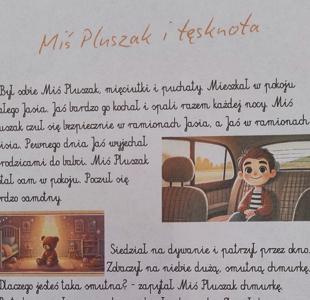 Miś Pluszak i tęsknota
Był sobie Miś Pluszak, mięciutki i puchaty. Mieszkał w pokoju
Jasia. Jaś bardzo go kochał i spali razem każdej nocy. Miś
czuł się bezpiecznie w ramionach Jasia, a Jaś w ramionach
Pewnego dnia Jaś wyjechał
rodzicami do babci. Miś Pluszak
sam w pokoju. Poczuł się
samotny.
Siedział na dywanie i patrzył przez okno.
Zobaczył na niebie dużą, smutną chmurkę.
Dlaczego jesteś taka smutna? - zapytał Miś Pluszak chmurkę.